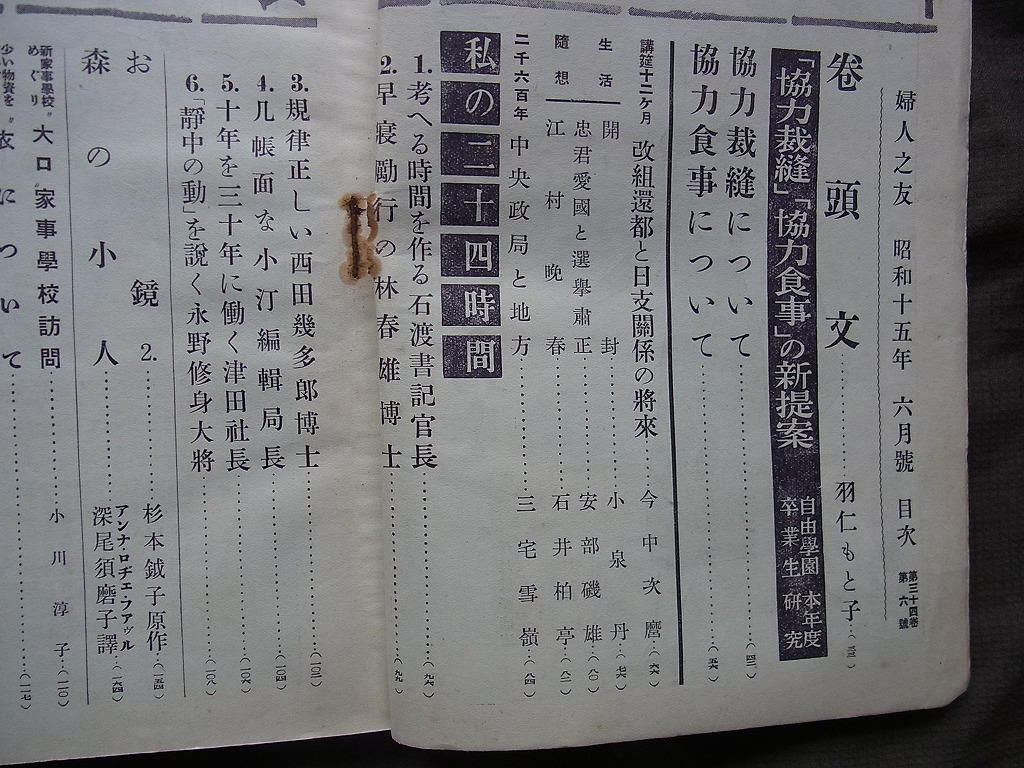 婦人之友 昭和十五年 六月號 目次 第三十四卷 第六號
卷頭文……羽仁もと子…(三三)
「協力裁縫」「協力食事」の新提案 自由學園卒業生 本年度研究
協力裁縫について……(四二)
協力食事について……(五六)
講筵十二ヶ月 改組還都と日支關係の將來……今中次麿…(六六)
生活 開封……小泉丹…(七六)
忠君愛國と選擧肅正……安部磯雄…(八〇)
隨想 江村晩春……石井柏亭…(八二)
二千六百年 中央政局と地方……三宅雪嶺…(八四)
私の二十四時間
1. 考へる時間を作る石渡書記官長……(九六)
2. 早寢勵行の林春雄博士……(九九)
3. 規律正しい西田幾多郎博士……(一〇二)
4. 几帳面な小汀編輯局長……(一〇四)
5. 十年を三十年に働く津田社長……(一〇六)
6. 「靜中の動」を說く永野修身大將……(一〇八)
お鏡 2.……杉本鉞子原作…(一五四)
森の小人……アンナ・ロチェ・ファヴル 深尾須磨子譯…(一六四)
新家事學校めぐり "大口"家事學校訪問……小川淳子…(一一〇)
少い物資を "衣について……(一一七)